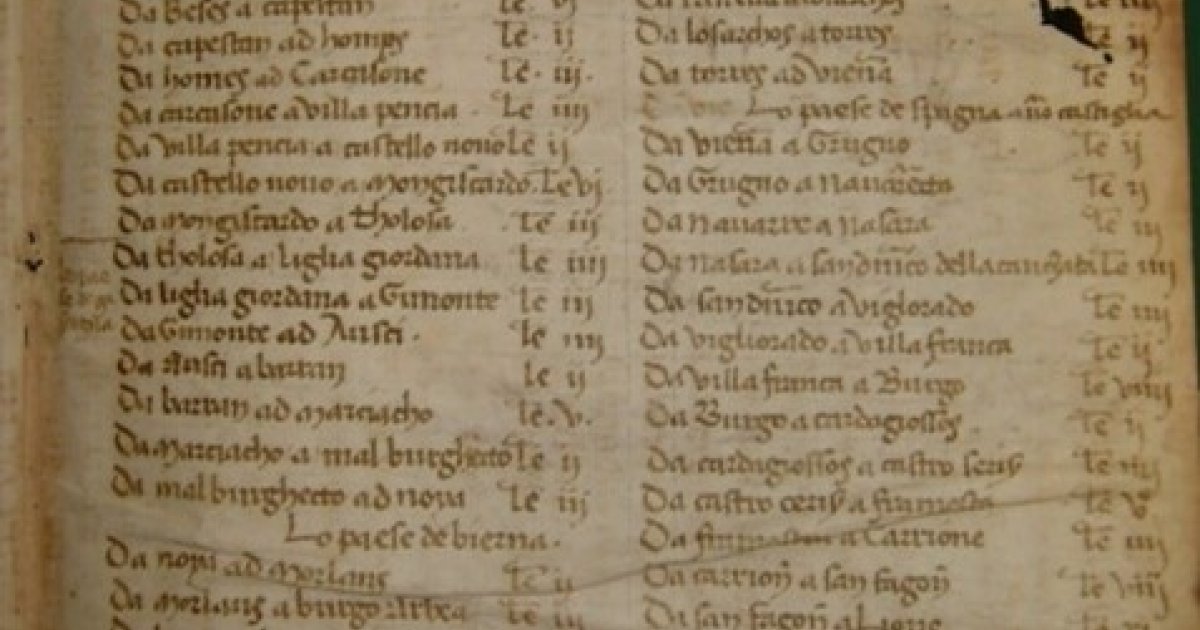 Da Beses a capestan le. vj
Da capestan ad homps le. ij
Da homes ad Carcasone le. iij.
Da carcasone a villa pencia . le iiij
Da villa pencia a castello nouo le ij
Da castello nouo a mongiscardo. le vj
Da mongiscardo a tholosa le iij
Da tholosa a liglia giordana le iiij
Da liglia giordana a Gimonte le iij
Da Gimonte ad Ausci . le iiij
Da Ausci a barran le ij
Da barran ad marciacho le. v.
Da marciacho a mal burghecto le ij
Da mal burghecto ad noya le iij
Lo paese de bierna.
Da noya ad morlans le ij
Da morlans a burgo le iij
Da losarchos a torres le ij
Da torres ad viena le ij
Lo paese de spagna castiglia
Da viena a Grugno le ij
Da Grugno a Nauarecta le ij
Da Nauarre a Nasara le iij
Da Nasara a san dinico della calzata le iiij
Da san dinico a viglorado le iiij
Da vigliorado a villa franca le ij
Da villa franca a Burgo le viiij
Da Burgo a cardogiossos le ij
Da cardigiossos a castro seris le iiij
Da castro ceris a frumesta le v
Da frumesta a Carrione le iiij
Da carrion a san fagon le viij
Da san fagon a Lione